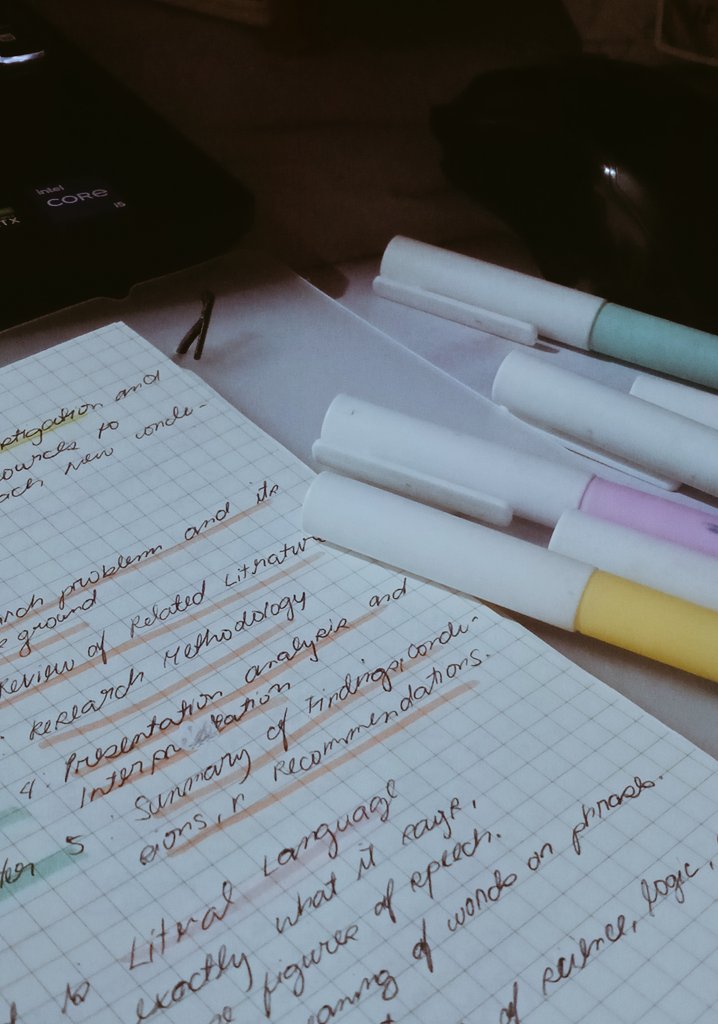 intel
CORE i5
TX
tigation and
ources to
ach new conclu-
rch problem and its
ground
Review of Related Literature
Research Methodology
4. Presentation analysis and
Interpretation
5. Summary of Findings, conclu-
sions, n Recommendations.
Litral Language
exactly what it says,
figures of speech.
aning of words or phrases.
of science, logic,